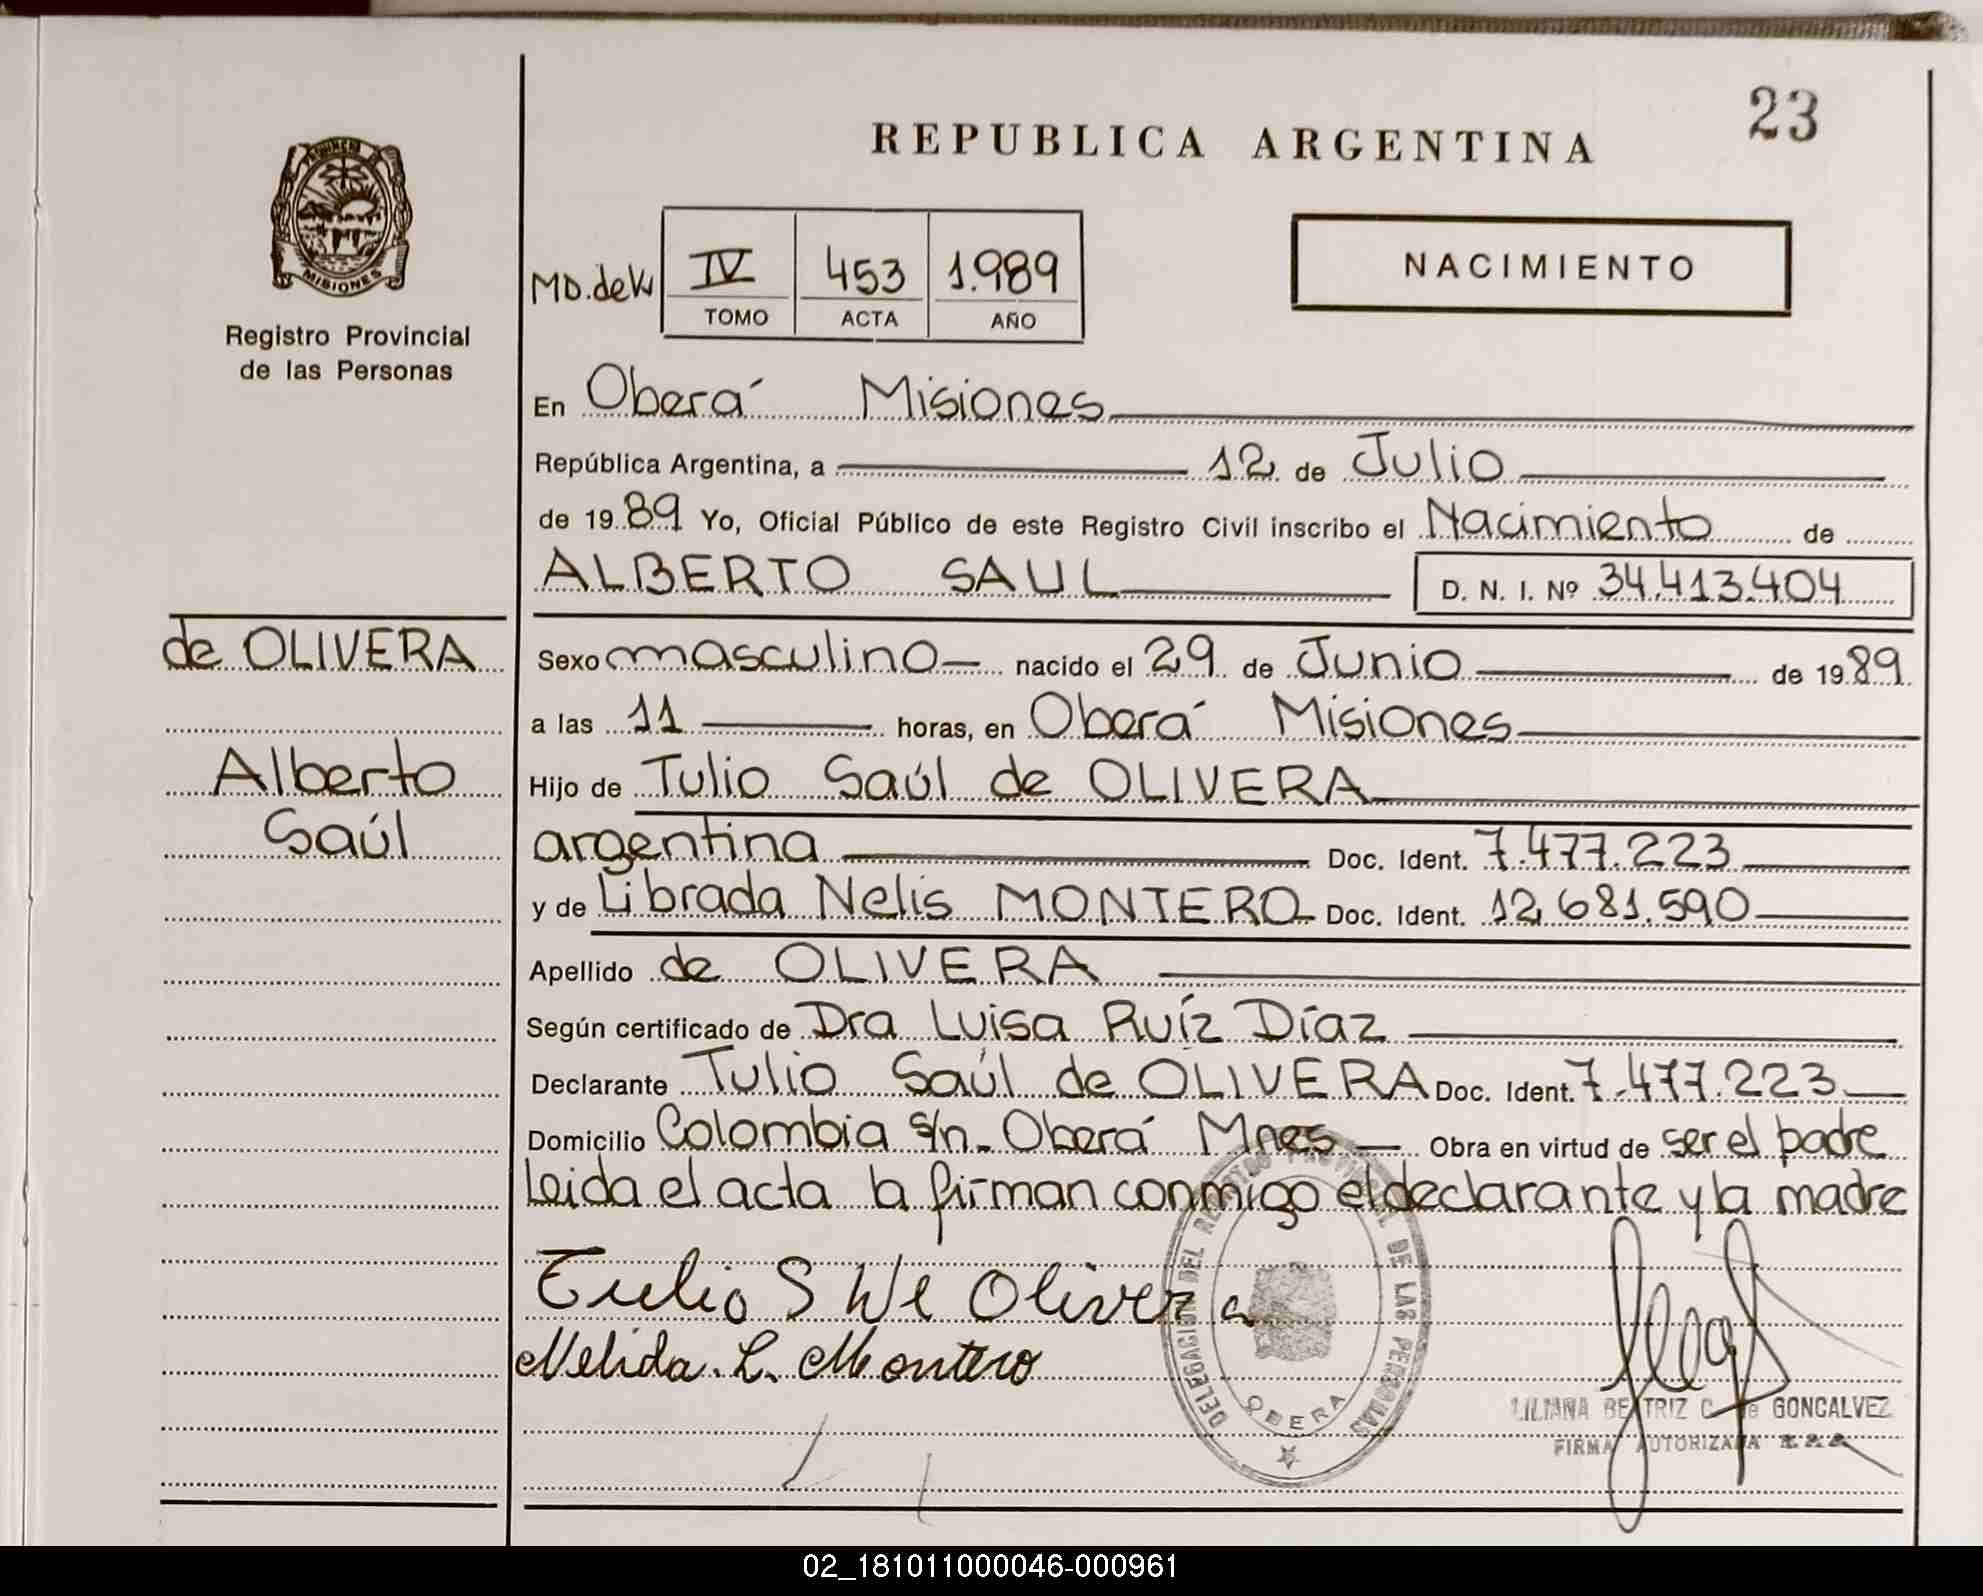 23
REPUBLICA ARGENTINA
PROVINCIA DE
MISIONES
Registro Provincial
de las Personas
IV 453 1.989
TOMO ACTA AÑO
NACIMIENTO
En Oberá Misiones
República Argentina, a 12 de Julio
de 1989 Yo, Oficial Público de este Registro Civil inscribo el Nacimiento de
ALBERTO SAUL D. N. I. Nº 34.413.404
de OLIVERA
Alberto
Saúl
Sexo masculino nacido el 29 de Junio de 1989
a las 11 horas, en Oberá Misiones
Hijo de Tulio Saúl de OLIVERA
argentina Doc. Ident. 7.477.223
y de Librada Nelis MONTERO Doc. Ident. 12.681.590
Apellido de OLIVERA
Según certificado de Dra Luisa Ruíz Díaz
Declarante Tulio Saúl de OLIVERA Doc. Ident. 7.477.223
Domicilio Colombia s/n - Oberá Mnes Obra en virtud de ser el padre
Leida el acta la firman conmigo el declarante y la madre
Tulio S Olivera
Nelida. L. Montero
DELEGACION DEL REGISTRO PROVINCIAL DE LAS PERSONAS
OBERA
LILIANA BEATRIZ C. de GONCALVEZ
FIRMA AUTORIZADA
02_181011000046-000961